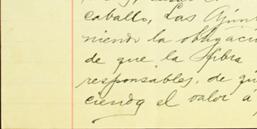 caballo, Las Ajun
niendo la obligaci
de que la fibra
responsables, de qu
cienda el valor a